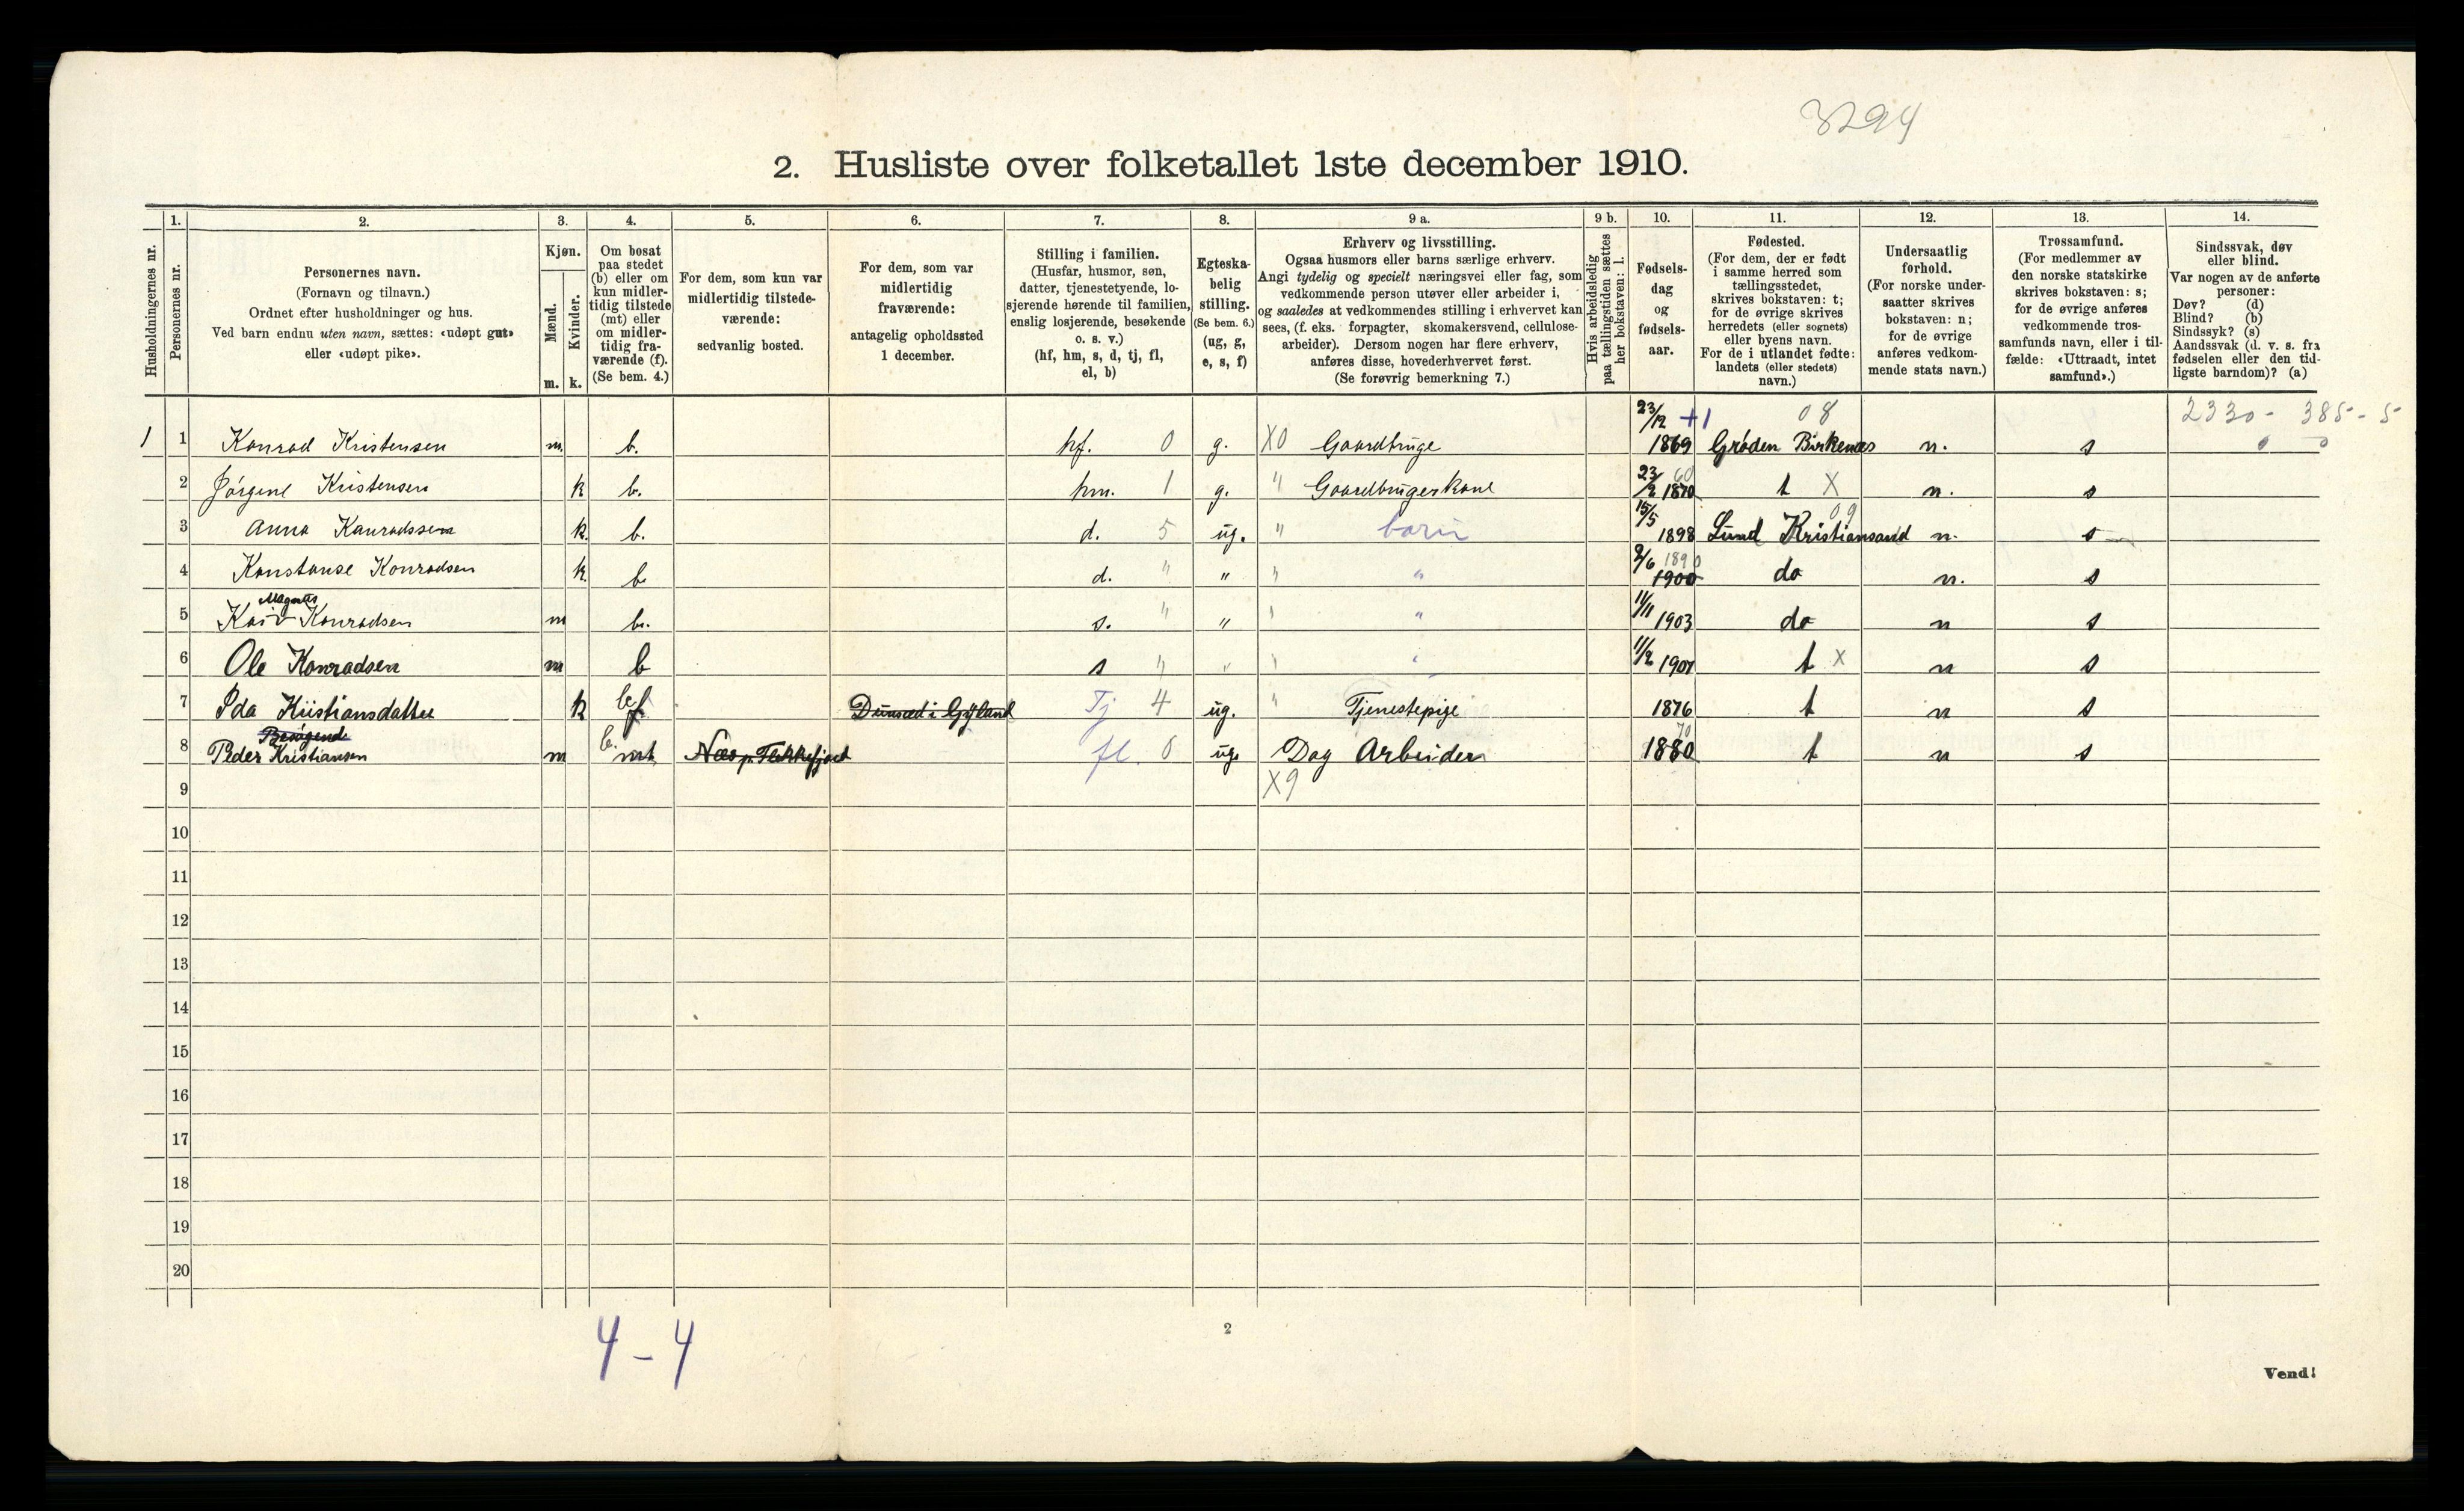 3294
2. Husliste over folketallet 1ste december 1910.
Husholdningernes nr.
1.
Personernes nr.
2.
Personernes navn.
(Fornavn og tilnavn.)
Ordnet efter husholdninger og hus.
Ved barn endnu uten navn, sættes: «udøpt gut»
eller «udøpt pike».
3.
Kjøn.
Mænd.
Kvinder.
m. k.
4.
Om bosat
paa stedet
(b) eller om
kun midler-
tidig tilstede
(mt) eller
om midler-
tidig fra-
værende (f).
(Se bem. 4.)
5.
For dem, som kun var
midlertidig tilstede-
værende:
sedvanlig bosted.
6.
For dem, som var
midlertidig
fraværende:
antagelig opholdssted
1 december.
7.
Stilling i familien.
(Husfar, husmor, søn,
datter, tjenestetyende, lo-
sjerende hørende til familien,
enslig losjerende, besøkende
o. s. v.)
(hf, hm, s, d, tj, fl,
el, b)
8.
Egteska-
belig
stilling.
(Se bem. 6.)
(ug, g,
e, s, f)
9 a.
Erhverv og livsstilling.
Ogsaa husmors eller barns særlige erhverv.
Angi tydelig og specielt næringsvei eller fag, som
vedkommende person utøver eller arbeider i,
og saaledes at vedkommendes stilling i erhvervet kan
sees, (f. eks. forpagter, skomakersvend, cellulose-
arbeider). Dersom nogen har flere erhverv,
anføres disse, hovederhvervet først.
(Se forøvrig bemerkning 7.)
9 b.
Hvis arbeidsledig
paa tællingstiden sættes
her bokstaven: l.
10.
Fødsels-
dag
og
fødsels-
aar.
11.
Fødested.
(For dem, der er født
i samme herred som
tællingsstedet,
skrives bokstaven: t;
for de øvrige skrives
herredets (eller sognets)
eller byens navn.
For de i utlandet fødte:
landets (eller stedets)
navn.)
12.
Undersaatlig
forhold.
(For norske under-
saatter skrives
bokstaven: n;
for de øvrige
anføres vedkom-
mende stats navn.)
13.
Trossamfund.
(For medlemmer av
den norske statskirke
skrives bokstaven: s;
for de øvrige anføres
vedkommende tros-
samfunds navn, eller i til-
fælde: «Uttraadt, intet
samfund».)
14.
Sindssvak, døv
eller blind.
Var nogen av de anførte
personer:
Døv? (d)
Blind? (b)
Sindssyk? (s)
Aandssvak (d. v. s. fra
fødselen eller den tid-
ligste barndom)? (a)
23/12 +1 08 2330 - 385 - 5
1 1 Konrad Kristensen m. b. hf. 0 g. X0 Gaardbruge 1869 Grøden Birkenæs n. s
2 Jørgine Kristensen k b. hm. 1 g. " Gaardbrugerkone 23/2 1870 60 t X n. s
3 Anna Konradssen k. b. d. 5 ug. " barn 15/5 1898 Lund Kristiansand 09 n. s
4 Konstanse Konradsen k b. d. " " " " 9/6 1890 1900 do n. s
Magnus
5 Kai Konradsen m b. s. " " " " 11/11 1903 do n s
6 Ole Konradsen m b s " " " " 11/2 1907 t X n s
7 Ida Kristiansdatter k b f Dunsæd i Gyland Tj 4 ug. " Tjenestepige 1876 t n s
Berigende
8 Peder Kristiansen m b. mt Næs p. Flekkefjord fl. 0 ug. Dag Arbeider 1880 70 t n s
9 X9
10
11
12
13
14
15
16
17
18
19
20
4 - 4
2
Vend!